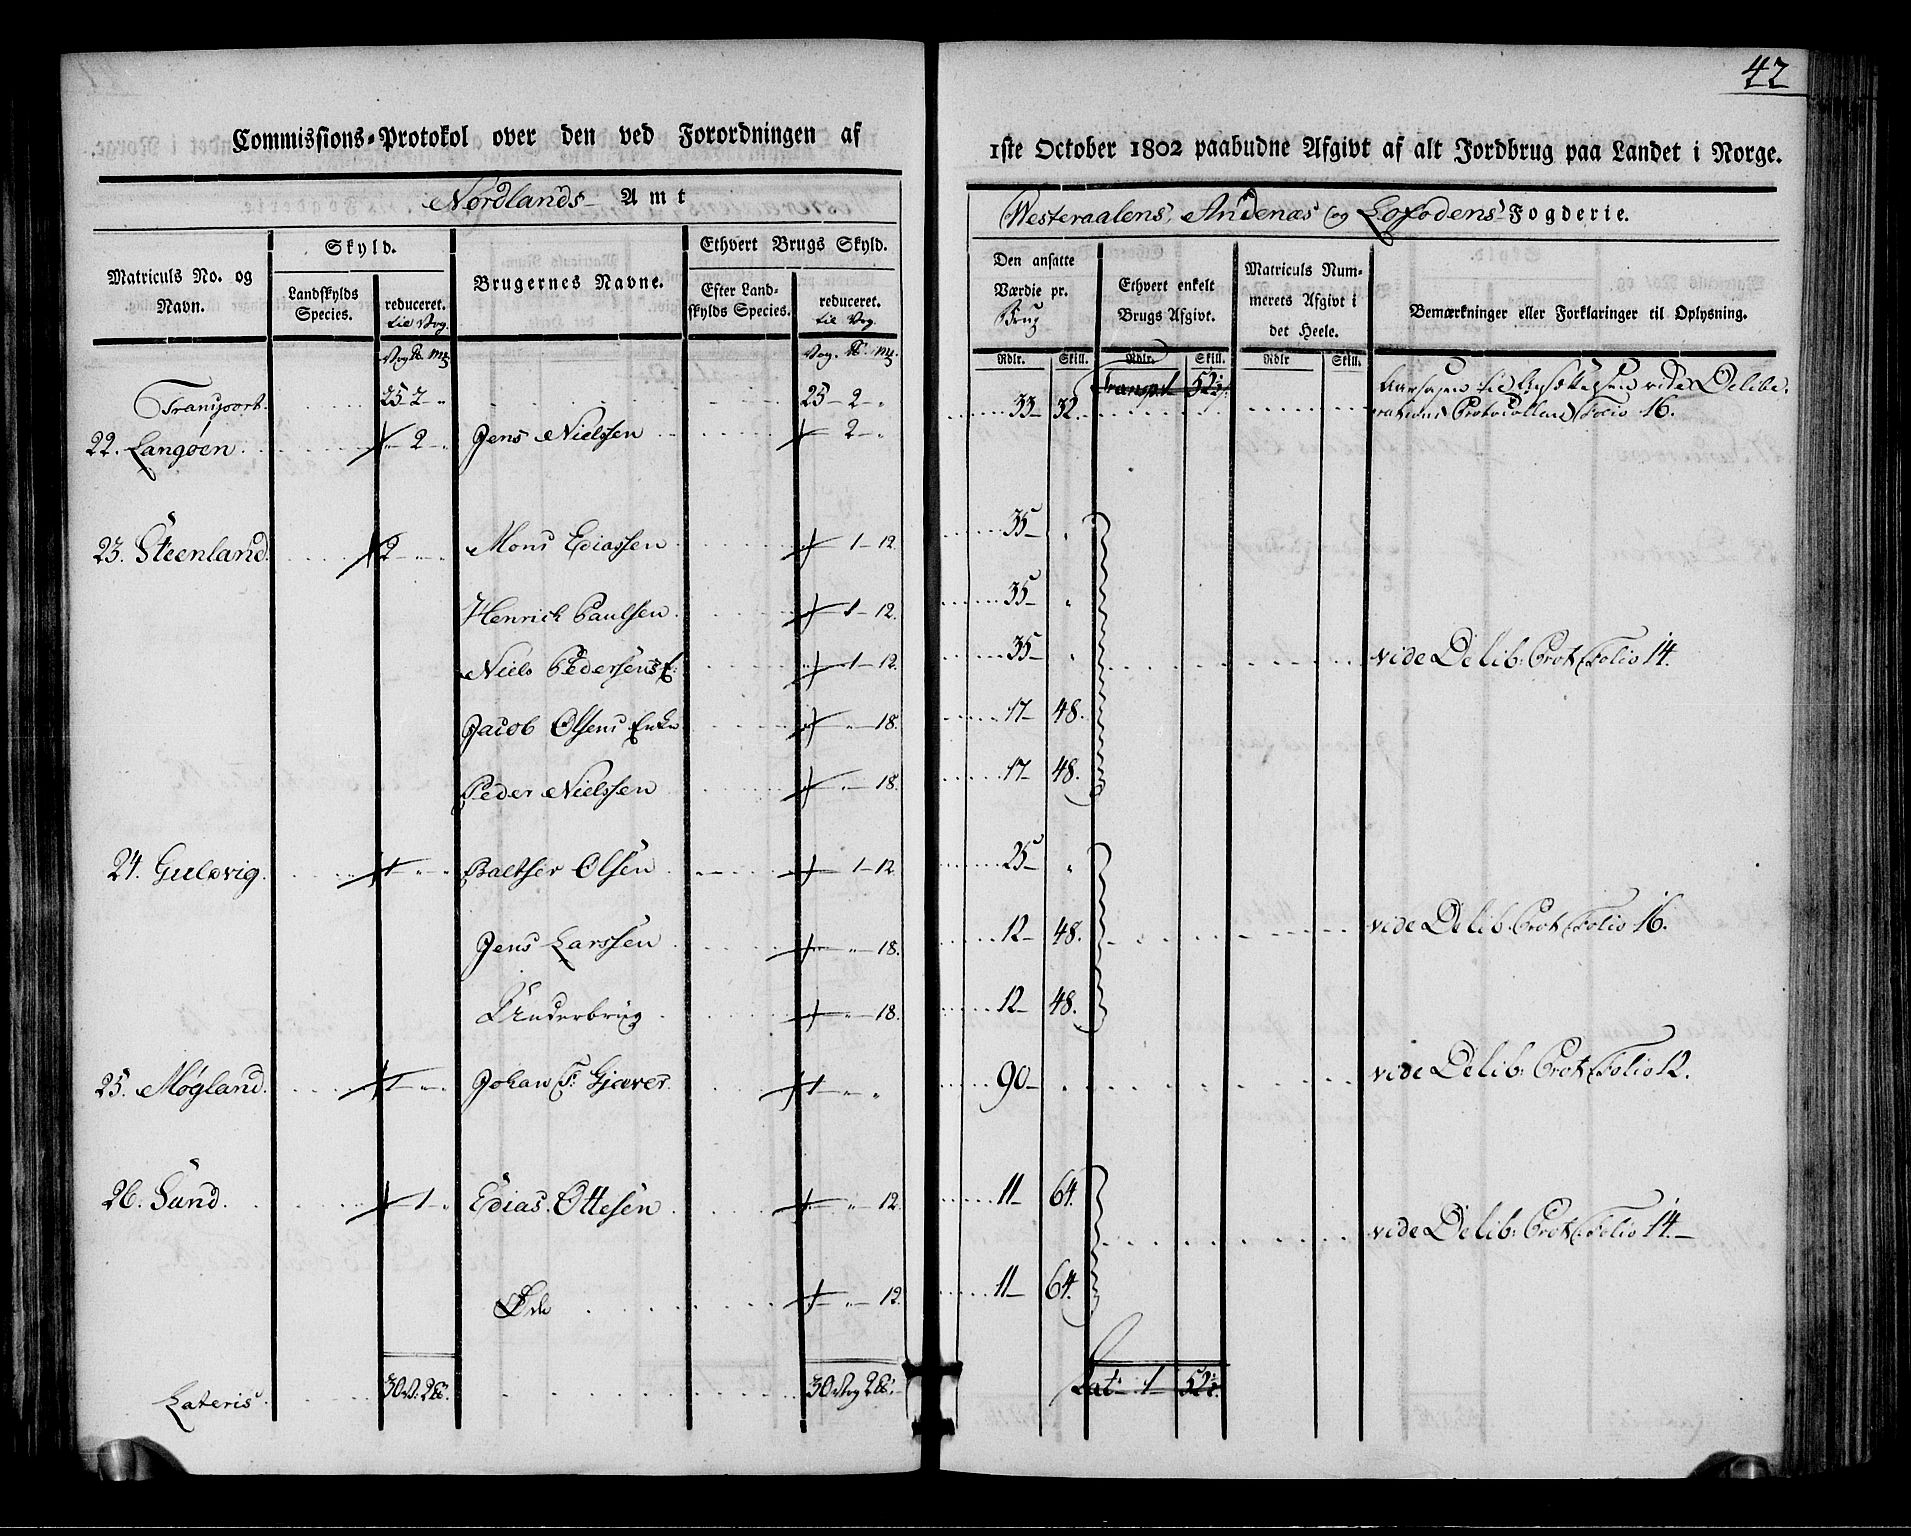 42
Commissions-Protokol over den ved Forordningen af
1ste October 1802 paabudne Afgivt af alt Jordbrug paa Landet i Norge.
Nordlands Amt
Westeraalens, Andenæs og Lofodens Fogderie.
Matriculs No. og Navn.
Skyld.
Landskylds Species.
reduceret. til Vog.
Brugernes Navne.
Ethvert Brugs Skyld.
Efter Landskylds Species.
reduceret. til Vog.
Den ansatte Værdie pr. Brug
Ethvert enkelt Brugs Afgivt.
Matriculs Nummerets Afgivt i det Heele.
Bemærkninger eller Forklaringer til Oplysning.
Rdlr. Skill. Rdlr. Skill. Rdlr Skill.
Transport. 25 2 " 25 - 2 - " Transpt 52½
22. Langøen 2 - " Jens Nielssen 2 - " 33 - 32. Aarsagen til Ansættelsen vide Delibe-
rations Protocollen Folio 16.
23. Steenland 2 - " - " Mons Ediassen 1 - 12. 35 - "
Henrich Paulsen 1 - 12. 35 - "
Niels Pedersens E: 1 - 12. 35 - " vide Delib: Prot: Folio 14.
Jacob Olsens Enke " - 18. 17 - 48.
Peder Nielssen " - 18. 17 - 48.
24. Gulevig 1 - " - " Baltser Olsen 1 - 12. 25 - "
Jens Larssen " - 18. 12 - 48. vide Delib. Prot Folio 16.
Underbrug " - 18. 12 - 48.
25. Møgland 1 - " - " Johan F: Gjæver 1 - " - " 90 - " vide Delib: Prot: Folio 12.
26. Sund 1 - " Edias Ottesen " - 12. 11 - 64. vide Delib: Prot: Folio 14.
Øde " - 12. 11 - 64.
Lateris 30 V. 2 ℔. 30 Vog 2 ℔. Lat: 1 - 52½.